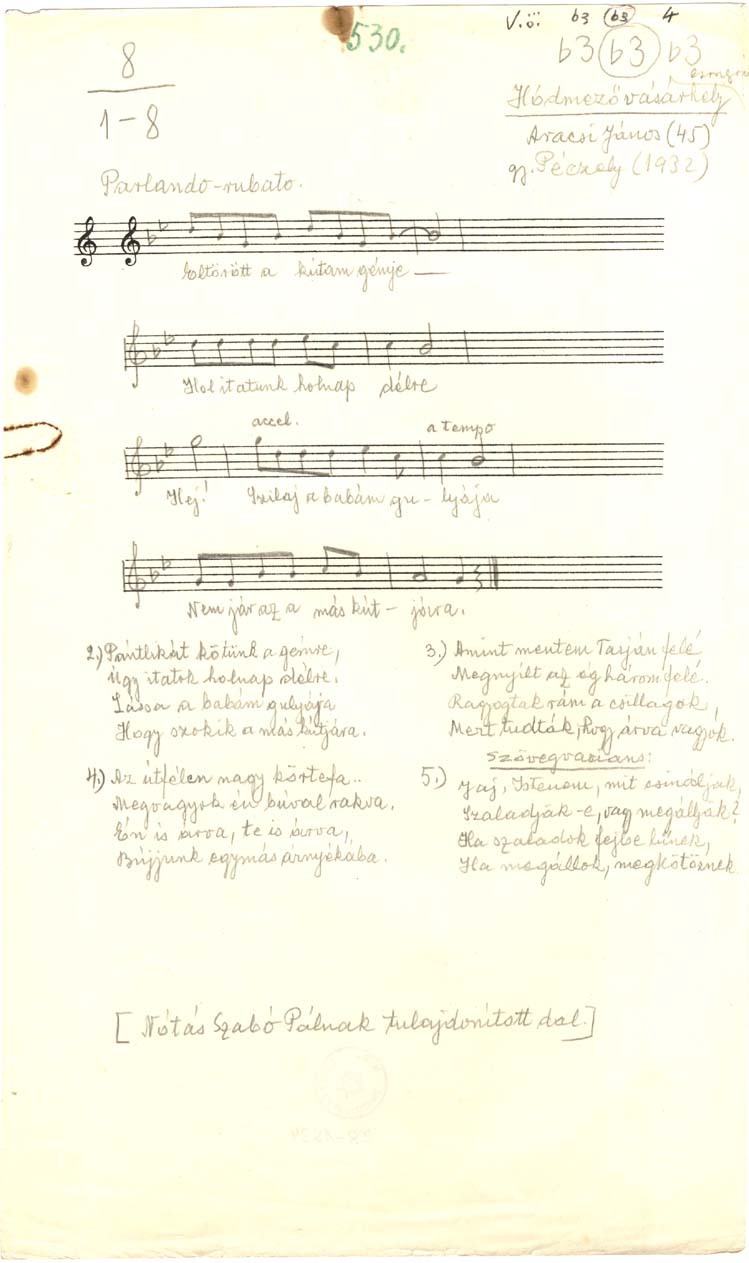 530.
V.ö. b3 (b3) 4
8
b3 (b3) b3
1-8
Hódmezővásárhely
Aracsi János (45)
gy. Péczely (1932)
Parlando-rubato.
Eltörött a kútam génje
Hol itatunk holnap délre
accel. a tempo
Hej! Szilaj a babám gu-lyája
Nem jár az a más kút-jóira.
2.) Pántlikát kötünk a gémre,
Úgy itatok holnap délre.
Lássa a babám gulyája
Hogy szokik a más kútjára.
3.) Amint mentem Tarján felé
Megnyílt az ég három felé.
Ragyogtak rám a csillagok,
Mert tudták, hogy árva vagyok.
4.) Az útfélen nagy körtefa..
Megvagyok én búval rakva.
Én is árva, te is árva,
Bújjunk egymás árnyékába.
Szövegvariáns:
5.) Jaj, Istenem, mit csináljak,
Szaladják-e, vagy megálljak?
Ha szaladok fejbe lűnek,
Ha megállok, megkötöznek
[Nótás Szabó Pálnak tulajdonított dal.]